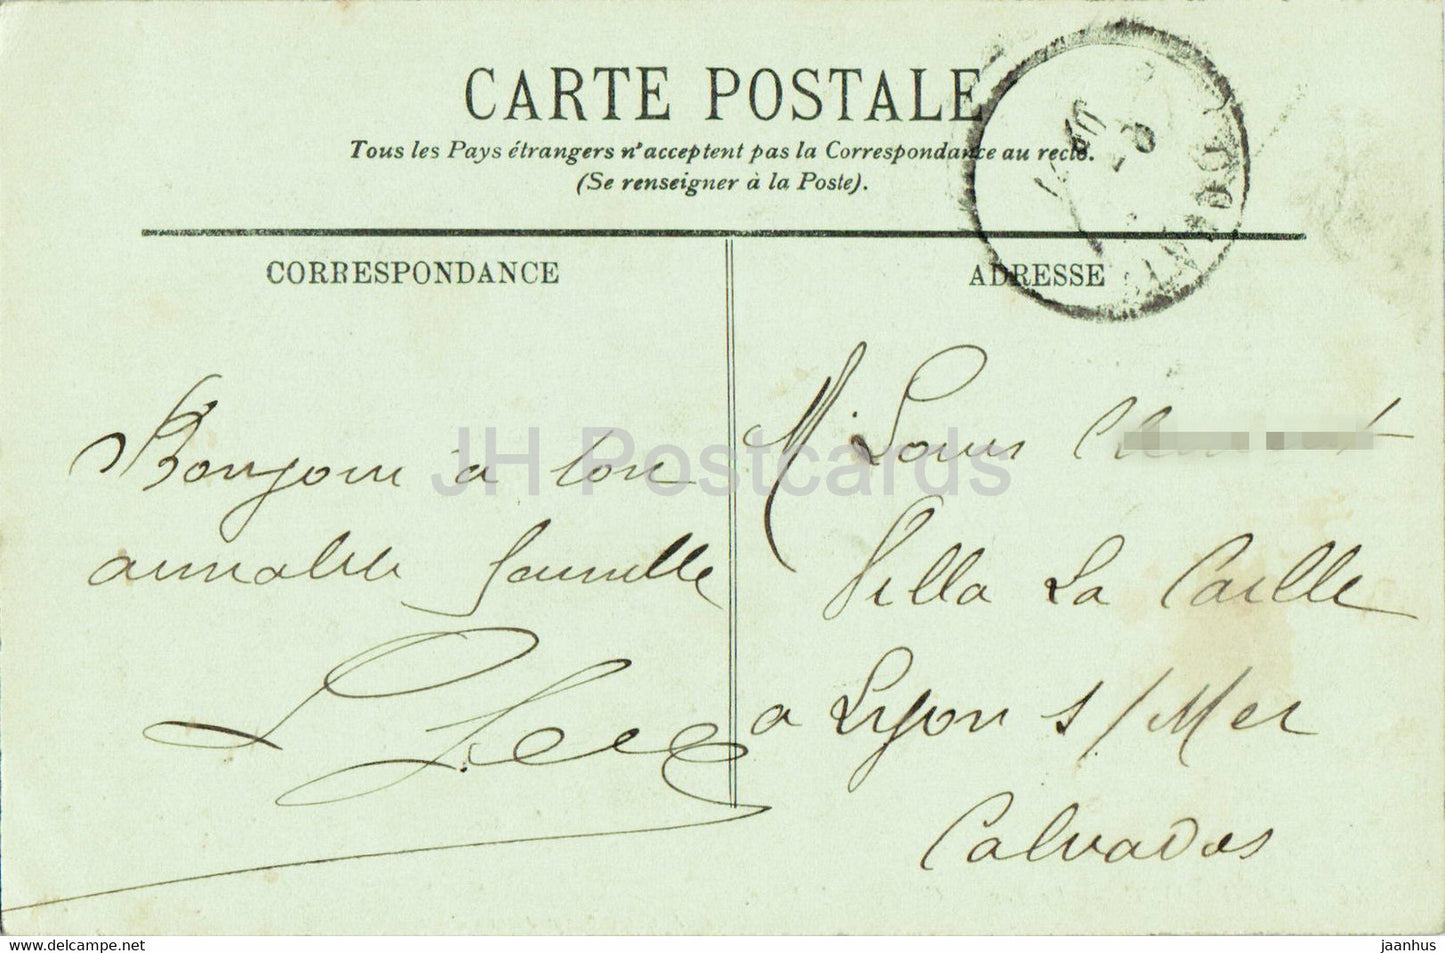 CARTE POSTALE
Tous les Pays étrangers n'acceptent pas la Correspondance au recto.
(Se renseigner à la Poste).
CORRESPONDANCE
ADRESSE
Bonjour à ton
aimable famille
M. Louis
Villa La Caille
a Lyon s/Mer
Calvados
JH Postcards
www.delcampe.net
jaanhus